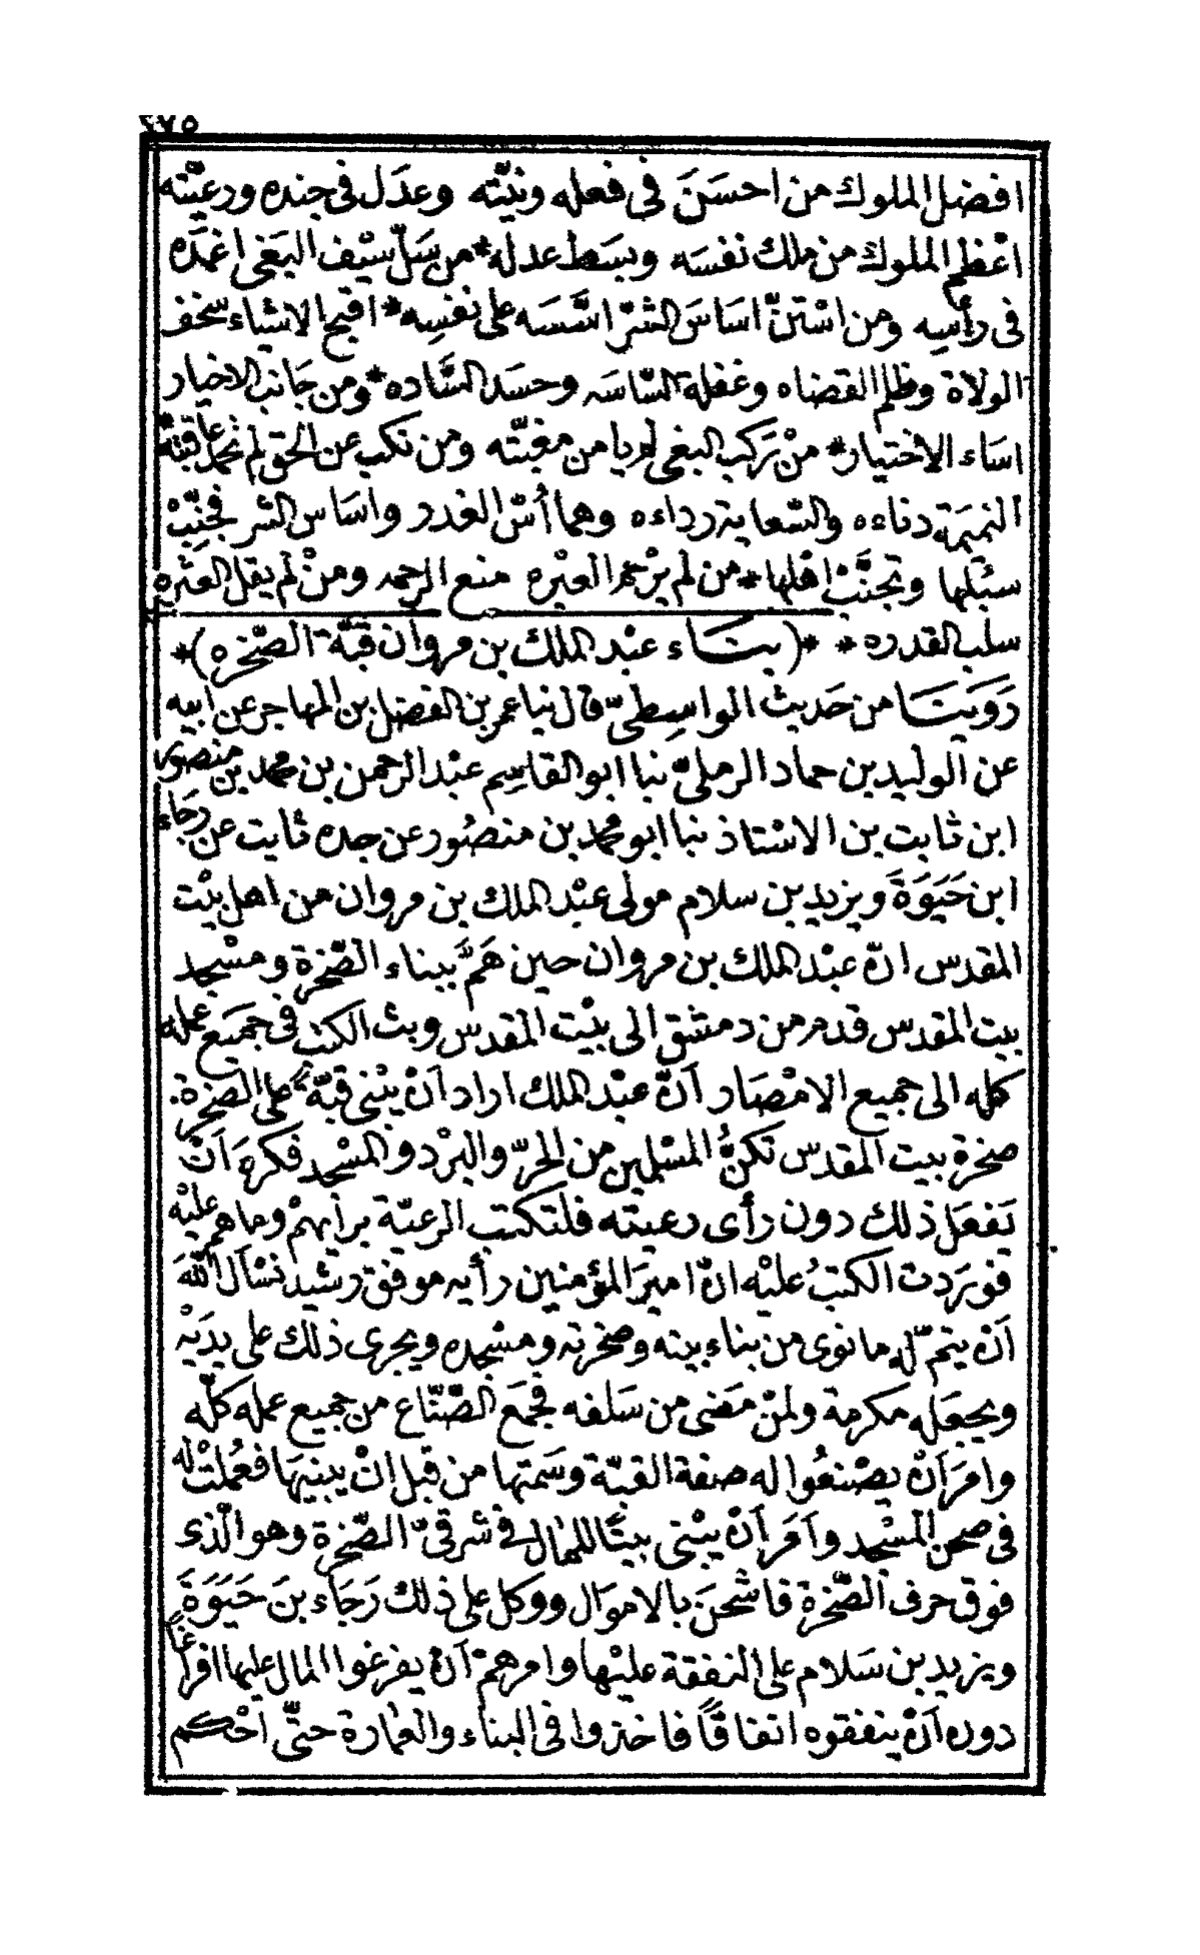 ٢٧٥
افضل الملوك من احسَنَ فى فعله ونيّته وعدَل فى جنده ورعيّته
اعْظم الملوك من ملك نفسَه وبسَط عدله * من سَلّ سيْف البَغى اغمدَه
فى رأسِه ومن اسْتنّ اسَاسَ الشرّ اسَّسَه على نفسِه * اقبح الاشياء سخف
الولاة وظلم القضاه وغفلة السّاسَه وحسَد السَّاده * ومن جَانب الاخيار
اسَاء الاختيار * منْ يَركب البغى لم ينج من مغبّته ومن نكب عن الحق لم تحمد عَاقبتُه
النميمَة دناءه والسّعاية رداءه وهما أسّ الغدر واسَاس الشر فجنّبْ
سبُلها وتجنَّبْ اهْلها * من لم يرْحم العبْره منع الرحمه ومنْ لم يقل العَثره
سلب القدره * * ( بنَاء عبْد الملك بن مروان قبّة الصّخره ) *
رَوَينَا من حَديث الواسِطىّ قال نبا عمر بن الفضل بن المهاجر عن ابيه
عن الوليد بن حماد الرملىّ نبا ابو القاسِم عبْد الرحمن بن محمد بن منصور
ابن ثابت بن الاسْتاذ نبا ابو محمد بن منصُور عن جده ثابت عن رجَاء
ابن حَيَوَةَ ويزيد بن سلام مولى عبْد الملك بن مروان من اهل بيْت
المقدس انّ عبْد الملك بن مروان حين هَمَّ ببناء الصّخرة ومسْجد
بيت المقدس قدم من دمشق الى بيْت المقدس وبث الكتب فى جميَع عمله
كله الى جميع الامْصَار أنّ عبْد الملك اراد أنْ يبْنى قبّة على الصّخرة
صخرة بيت المقدس تكنُّ المسْلمين من الحرّ والبرْد والمسْجد فكره أنْ
يَفعَل ذلك دون رأى رعيته فلتكتب الرعيّة برأيهمْ وما هم عليْه
فوَرَدت الكتبُ عليْه انّ اميرَ المؤمنين رأيه موفق رشيد نسْأل اللهَ
أنْ يتمّ له ما نوى من بناء بيته وصخرته ومسْجده ويجرى ذلك على يدَيْه
ويجعَله مكرمة ولمنْ مضى من سَلفه فجمَع الصّنّاع من جميع عمله كلّه
وامَر أنْ يصْنعُوا له صفة القبّة وسَمتها من قبل انْ يبنيهَا فعُملتْ له
فى صحن المسْجد وأمَر أنْ يبْنى بيتًا للمال فى شرقىّ الصّخرة وهو الّذى
فوق حرف الصّخرة فاشحنَ بالاموَال ووكل على ذلك رَجَاء بنَ حَيَوَةَ
ويزيد بن سَلام على النفقة عليْها وامرهمْ أنْ يفرغوا المال عليها افراغًا
دون أنْ ينفقوه انفاقًا فاخذوا فى البناء والعمارة حتّى أحْكم